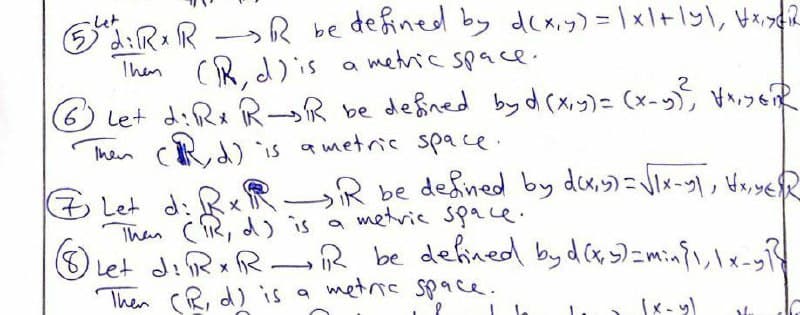 ⑤ Let d:ℝxℝ → ℝ be defined by d(x,y) = |x|+|y|, ∀x,y∈ℝ
Then (ℝ,d) is a metric space.
⑥ Let d:ℝxℝ→ℝ be defined by d(x,y) = (x-y)², ∀x,y∈ℝ
Then (ℝ,d) is a metric space.
⑦ Let d:ℝxℝ → ℝ be defined by d(x,y) = √|x-y|, ∀x,y∈ℝ
Then (ℝ,d) is a metric space.
⑧ Let d:ℝxℝ → ℝ be defined by d(x,y)=min{1,|x-y|}
Then (ℝ,d) is a metric space.
|x-y|